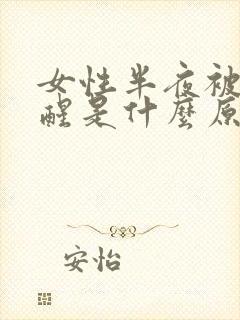 女性半夜被
醒是什麼原
安怡